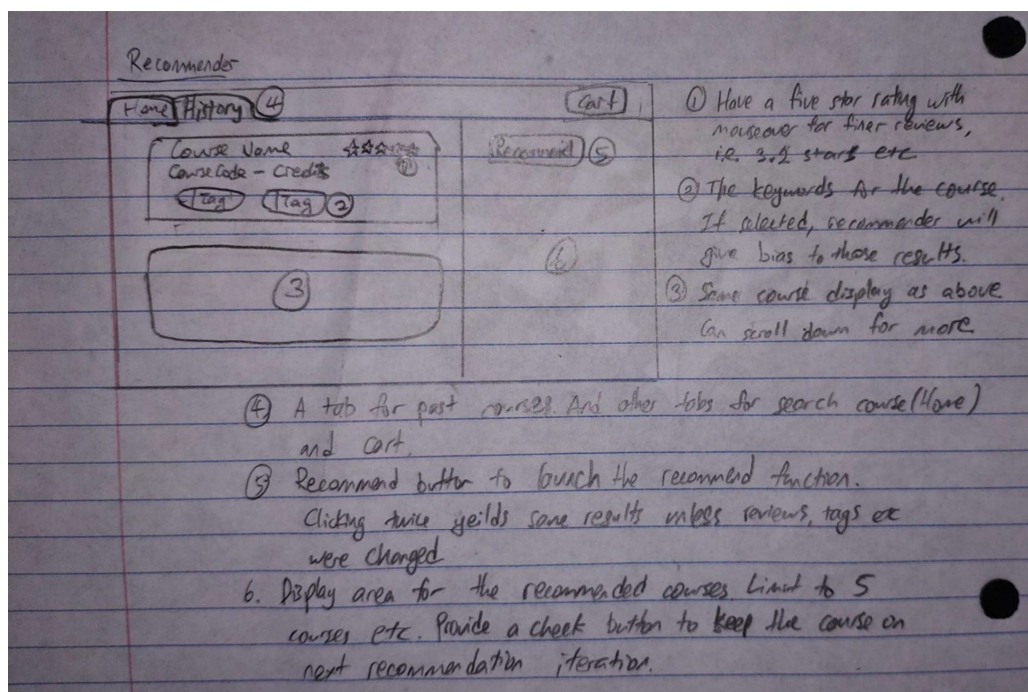 Recommender
Home History ④ Cart
Course Name
Course Code - Credits ①
Tag Tag ②
Recommend ⑤
③
⑥
① Have a five star rating with
mouseover for finer reviews,
i.e. 3.2 stars etc
② The keywords for the course.
If selected, recommender will
give bias to those results.
③ Same course display as above
Can scroll down for more
④ A tab for past courses. And other tabs for search course (Home)
and cart.
⑤ Recommend button to launch the recommend function.
Clicking twice yeilds same results unless reviews, tags etc
were changed
6. Display area for the recommended courses. Limit to 5
courses etc. Provide a check button to keep the course on
next recommendation iteration.